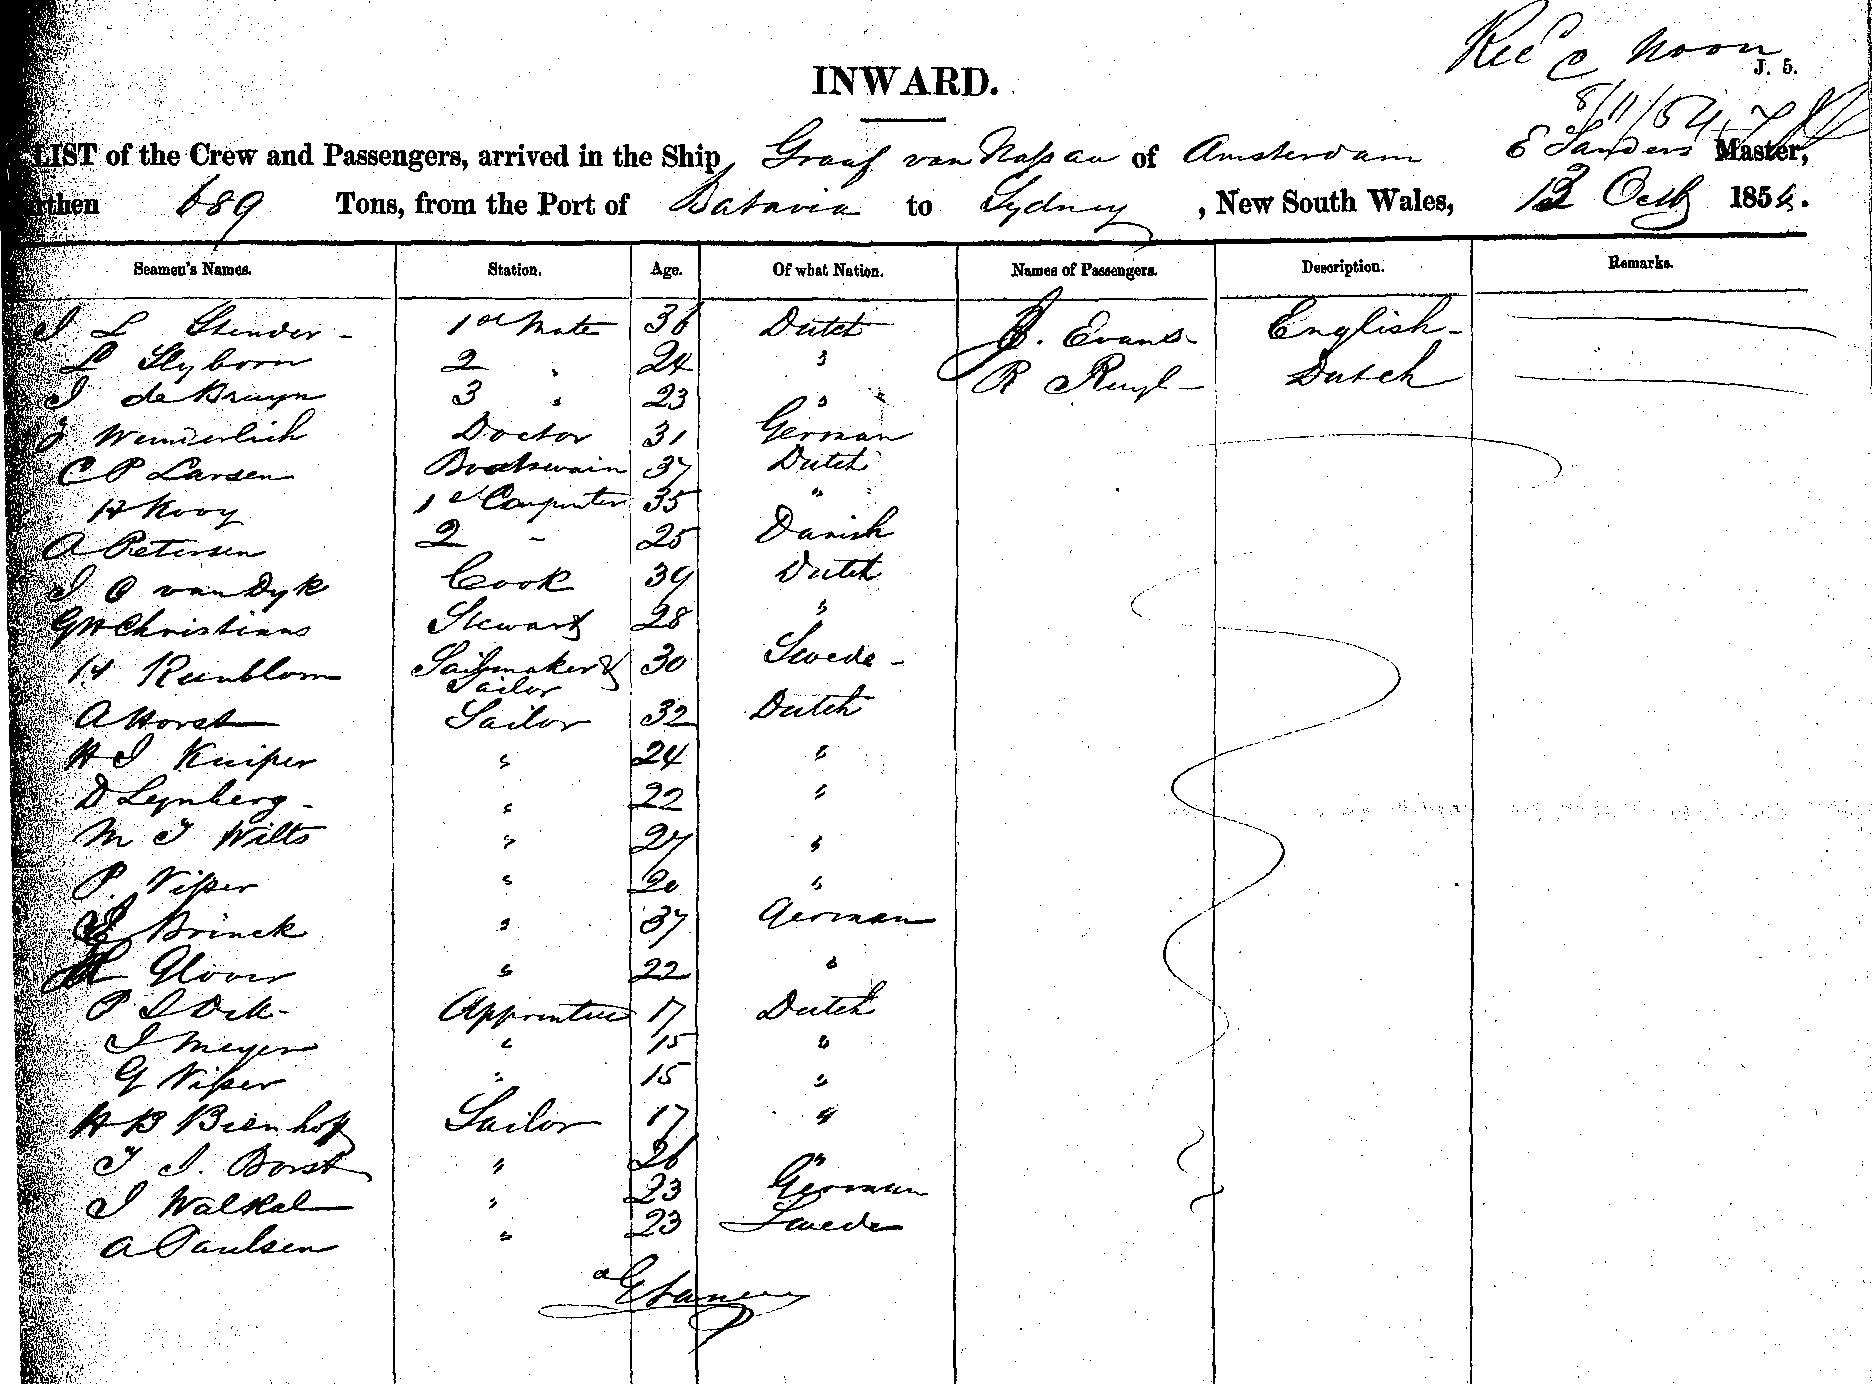 Recd Noon
J. 5.
8/11/54
INWARD.
LIST of the Crew and Passengers, arrived in the Ship Graaf van Nassau of Amsterdam E Sanders Master,
rthen 689 Tons, from the Port of Batavia to Sydney, New South Wales, 13 Octb 1854.
Seamen's Names. Station. Age. Of what Nation. Names of Passengers. Description. Remarks.
J L Stender - 1st Mate 36 Dutch J. Evans - English -
L Slyboom 2 " 24 " R Ruyl - Dutch
J de Bruyn 3 " 23 "
J Wunderlich Doctor 31 German
C P Larsen Boatswain 37 Dutch
H Kooy 1st Carpenter 35 "
A Petersen 2 - 25 Danish
J C van Dyk Cook 39 Dutch
G H Christians Steward 28 "
H Runblom Sailmaker & Sailor 30 Swede -
A Horst Sailor 32 Dutch
H J Kuiper " 24 "
D Leynberg - " 22 "
M J Wilts " 27 "
P. Visser " 20 "
Brinck " 37 German
Glover " 22 "
P J Dek - Apprentice 17 Dutch
J Meyer " 15 "
G Visser " 15 "
H B Bienhoff Sailor 17 "
T J. Borst " 26 "
J Walkal " 23 German
A Paulsen " 23 Swede